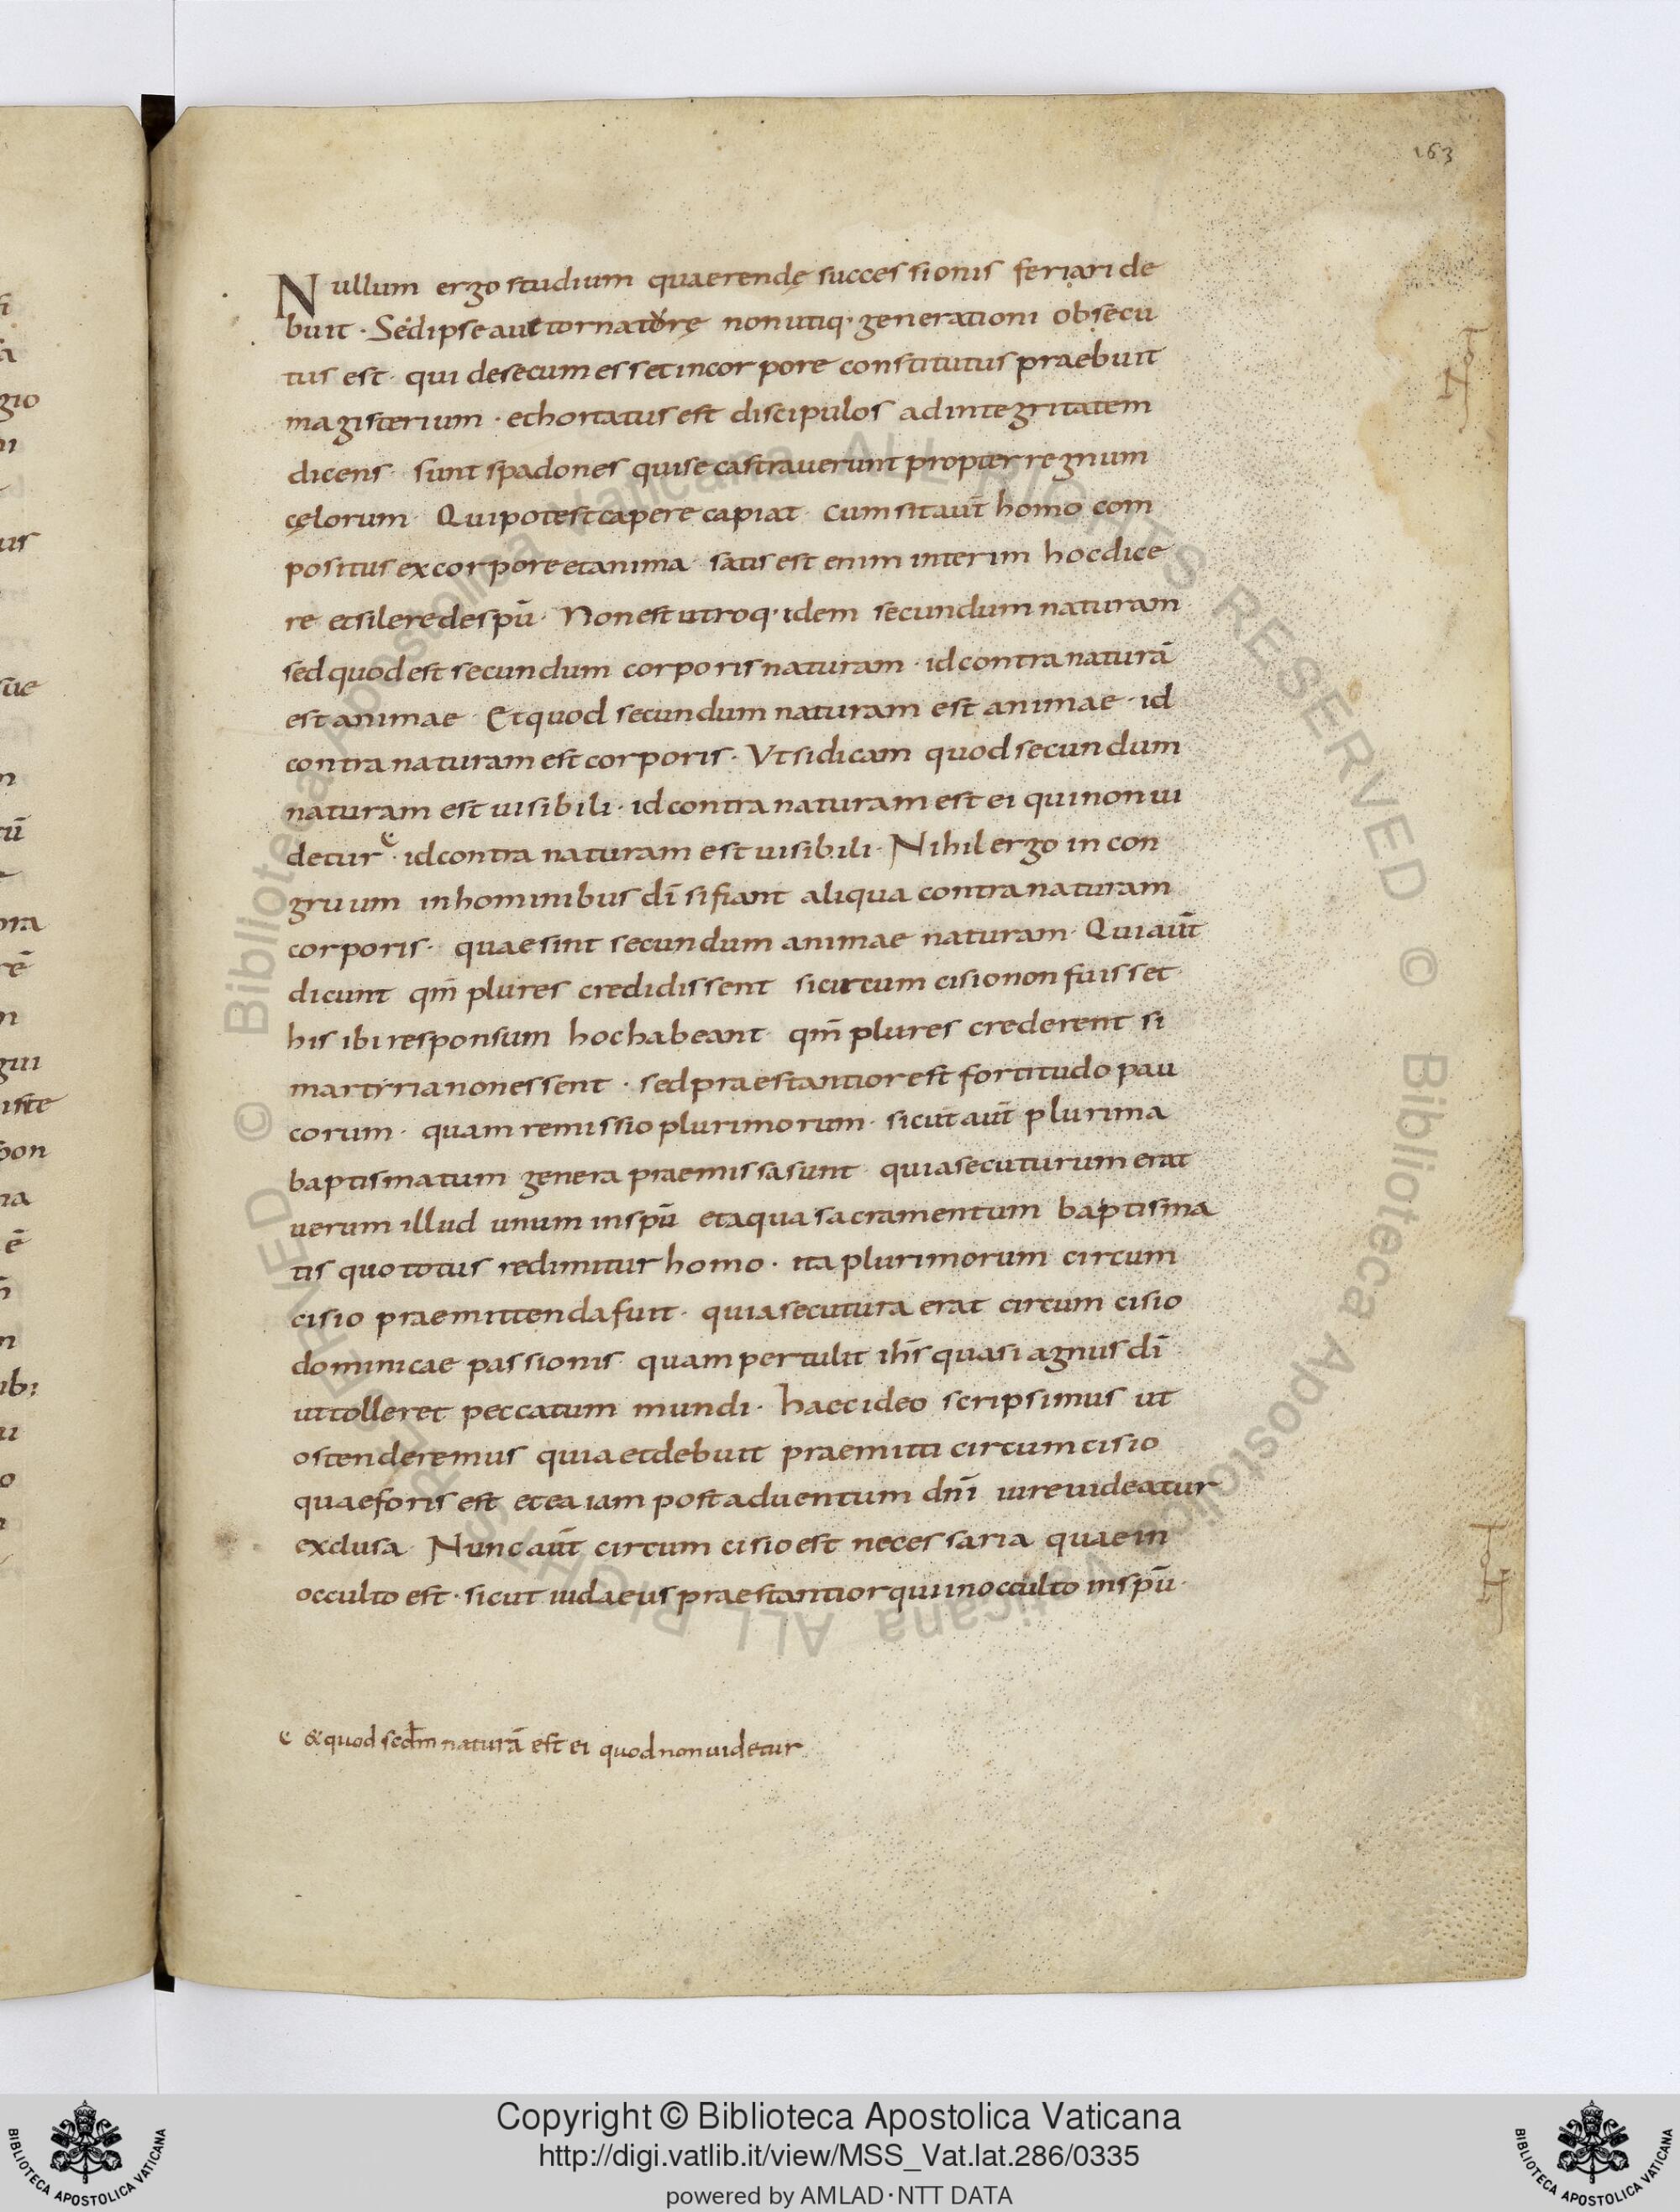 163
Nullum ergo studium quaerendę successionis feriari de
buit · Sed ipse auctor naturę non utiq· generationi obsecu
tus est · qui de se cum esset in corpore constitutus praebuit
magisterium · et hortatus est discipulos ad integritatem
dicens · sunt spadones qui se castrauerunt propter regnum
cęlorum · Qui potest capere capiat · cum sit aūt homo com
positus ex corpore et anima · satis est enim interim hoc dice
re et silere de spū · Non est utroq· idem secundum naturam
sed quod est secundum corporis naturam · id contra naturā
est animae · Et quod secundum naturam est animae · id
contra naturam est corporis · Ut si dicam quod secundum
naturam est uisibili · id contra naturam est ei qui non ui
detur e · id contra naturam est uisibili · Nihil ergo in con
gruum in hominibus dī si fiant aliqua contra naturam
corporis · quae sint secundum animae naturam · Qui aūt
dicunt qm̄ plures credidissent si circumcisio non fuisset ·
his ibi responsum hoc habeant · qm̄ plures crederent si
martyria non essent · sed praestantior est fortitudo pau
corum · quam remissio plurimorum · sicut aūt plurima
baptismatum genera praemissa sunt quia secuturum erat
uerum illud unum in spū et aqua sacramentum baptisma
tis quo totus redimitur homo · ita plurimorum circum
cisio praemittenda fuit · quia secutura erat circumcisio
dominicae passionis · quam pertulit ih̄s quasi agnus dī
ut tolleret peccatum mundi · haec ideo scripsimus ut
ostenderemus quia et debuit praemitti circumcisio
quae foris est et ea iam post aduentum dn̄i iure uideatur
exclusa · Nunc aūt circumcisio est necessaria quae in
occulto est · sicut iudaeus praestantior qui in occulto in spū ·
e &quod scdm naturā est ei quod non uidetur
© Biblioteca Apostolica Vaticana ALL RIGHTS RESERVED © Biblioteca Apostolica Vaticana ALL RIGHTS RESERVED
Copyright © Biblioteca Apostolica Vaticana
http://digi.vatlib.it/view/MSS_Vat.lat.286/0335
powered by AMLAD·NTT DATA
BIBLIOTECA APOSTOLICA VATICANA
BIBLIOTECA APOSTOLICA VATICANA